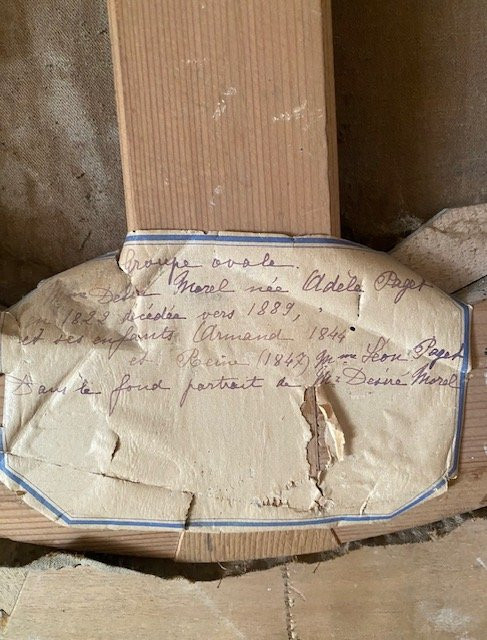 Groupe ovale.
Mme Désiré Morel née Adèle Paget
1822 décédée vers 1889,
et ses enfants Armand 1844
et Reine (1847) Mme Léon Paget
Dans le fond portrait de Mr Désiré Morel